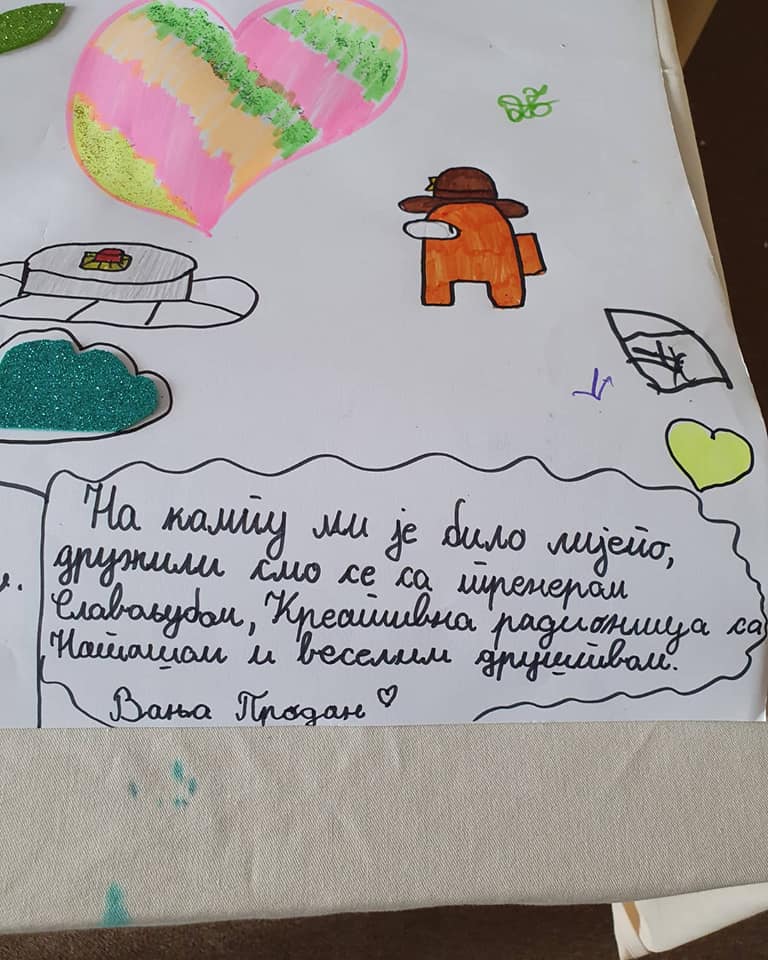 На кампу ми је било лијепо,
дружили смо се са тренером
Славољубом, Креативна радионица са
Наташом и веселим друштвом.
Вања Продан